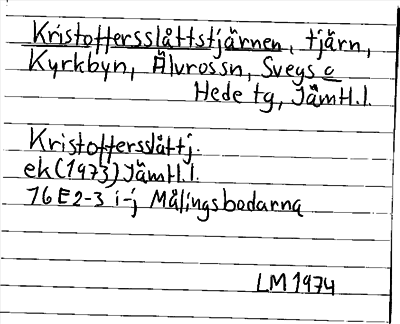 Kristoffersslåttstjärnen, tjärn,
Kyrkbyn, Älvrossn, Svegs o
Hede tg, Jämtl.l.
Kristoffersslåttj.
ek (1973) Jämtl.l.
16E2-3 i-j Målingsbodarna
LM 1974